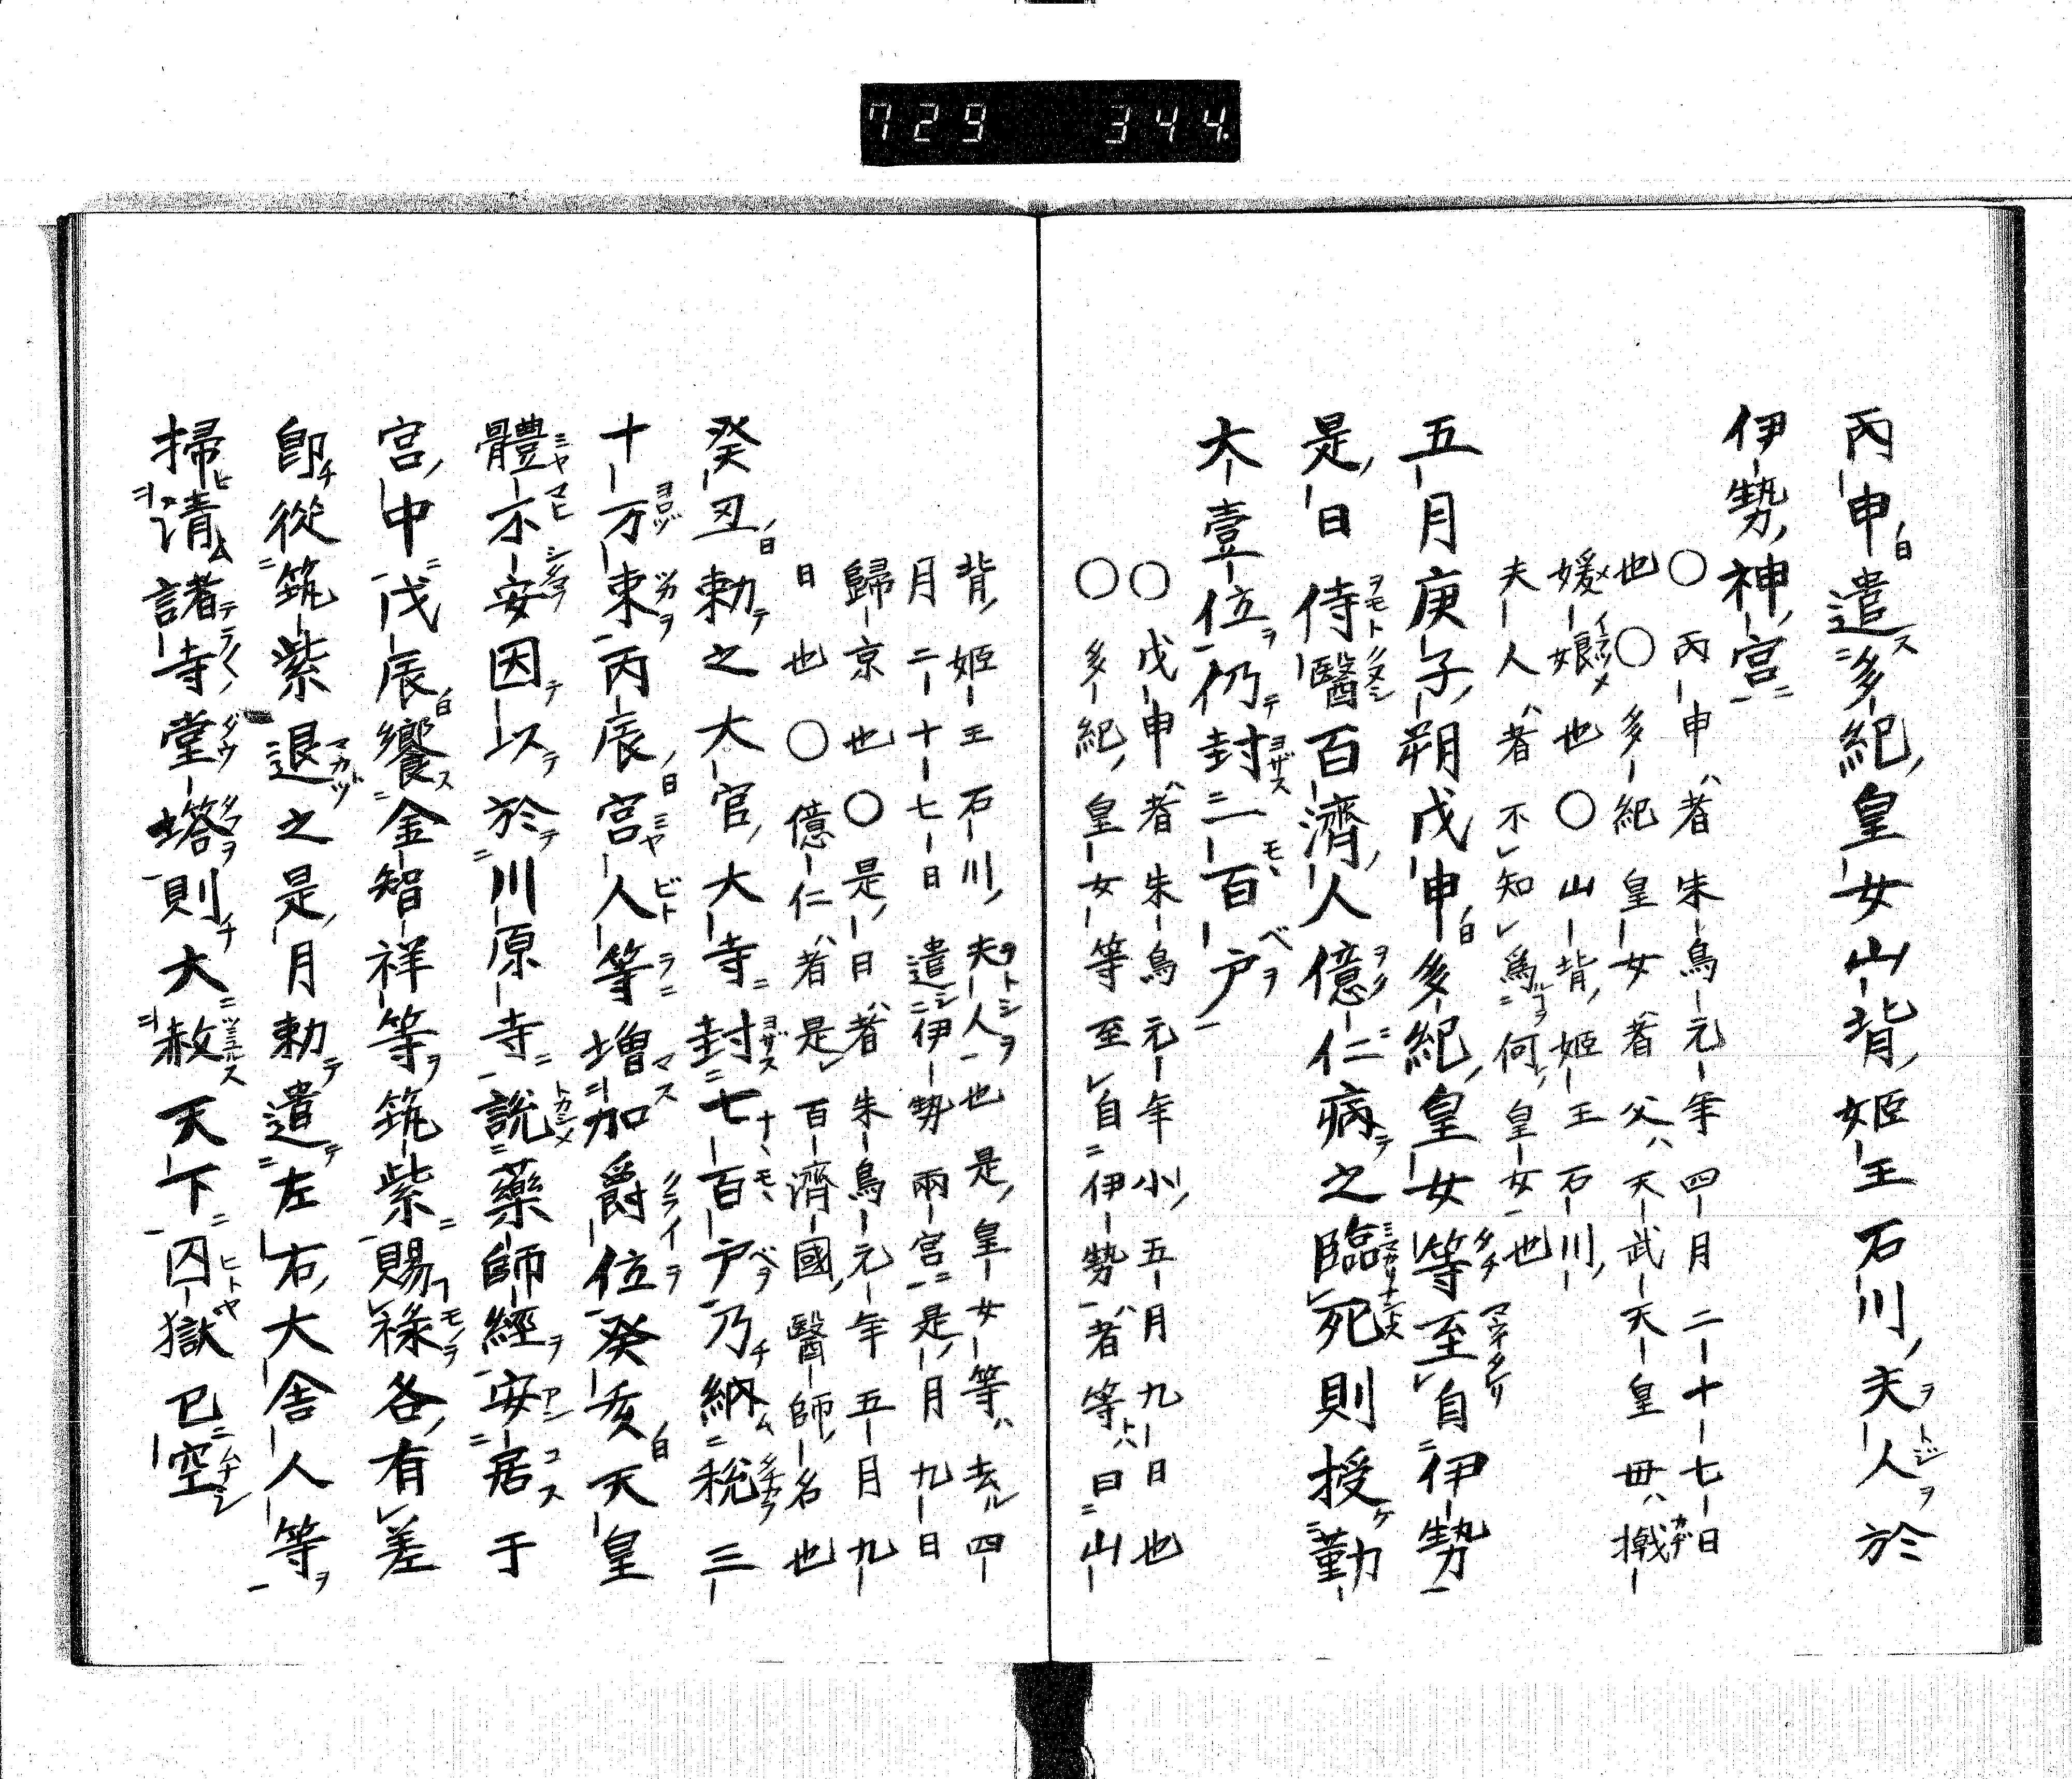 729 344
丙申遣多紀皇女山背姬王石川夫人於
伊勢神宮
○丙申者朱鳥元年四月二十七日
也○多紀皇女者父天武天皇毋擑
媛娘也○山背姬王石川
夫人者不知爲何皇女也
五月庚子朔戊申多紀皇女等至自伊勢
是日侍醫百濟人億仁病之臨死則授勤
大壹位仍封二百户
○戊申者朱鳥元年小五月九日也
○多紀皇女等至自伊勢者等曰山
背姬王石川夫人也是皇女等去四
月二十七日遣伊勢兩宮是月九日
歸京也○是日者朱鳥元年五月九
日也○億仁者是百濟國醫師名也
癸丑勅之大官大寺封七百户乃納税三
十万束丙辰宮人等増加爵位癸亥天皇
體不安因以於川原寺說藥師經安居于
宮中戊辰饗金智祥等筑紫賜祿各有差
卽從筑紫退之是月勅遣左右大舍人等
掃清諸寺堂塔則大赦天下囚獄已空